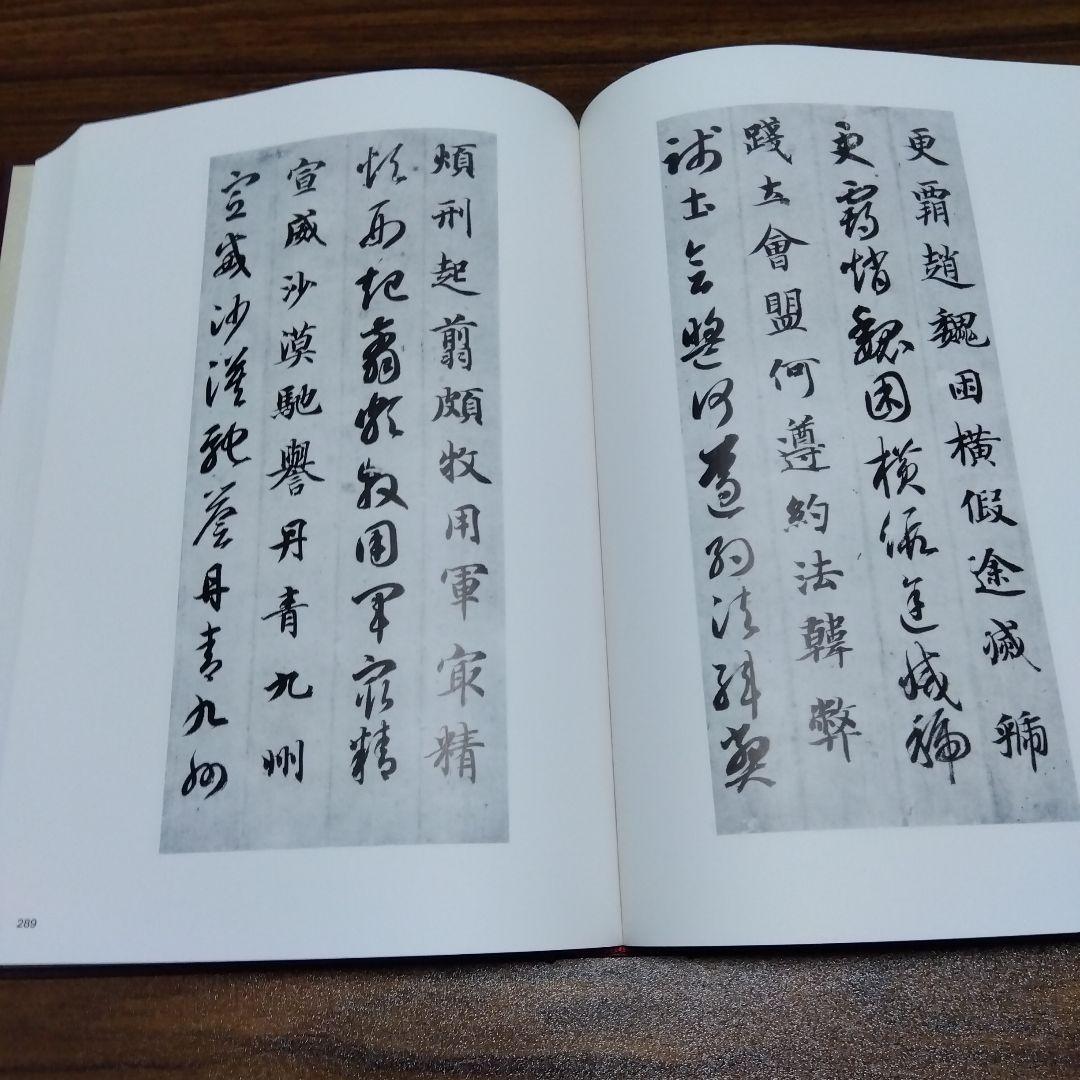 更霸趙魏困橫假途滅虢
更霸趙魏困橫假途滅虢
踐土會盟何遵約法韓弊
踐土會盟何遵約法韓弊
煩刑起翦頗牧用軍㝡精
煩刑起翦頗牧用軍㝡精
宣威沙漠馳譽丹青九州
宣威沙漠馳譽丹青九州
289